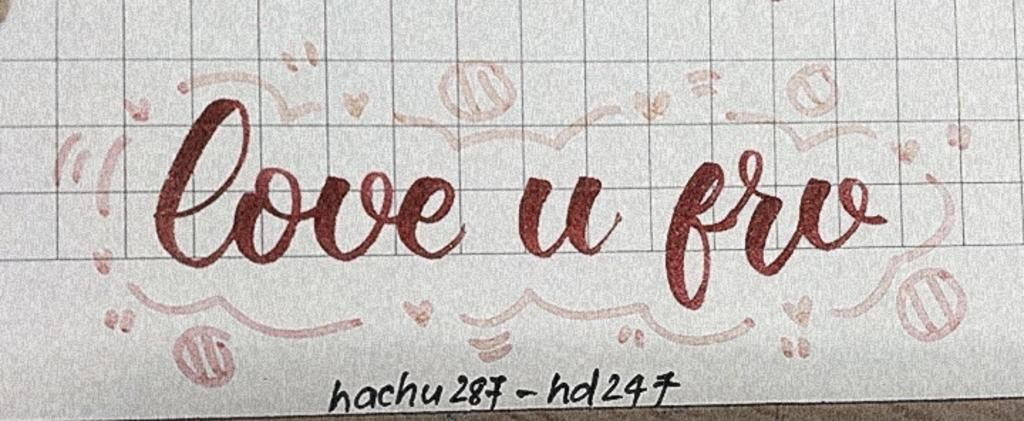 love u frv
hachu287-hd247